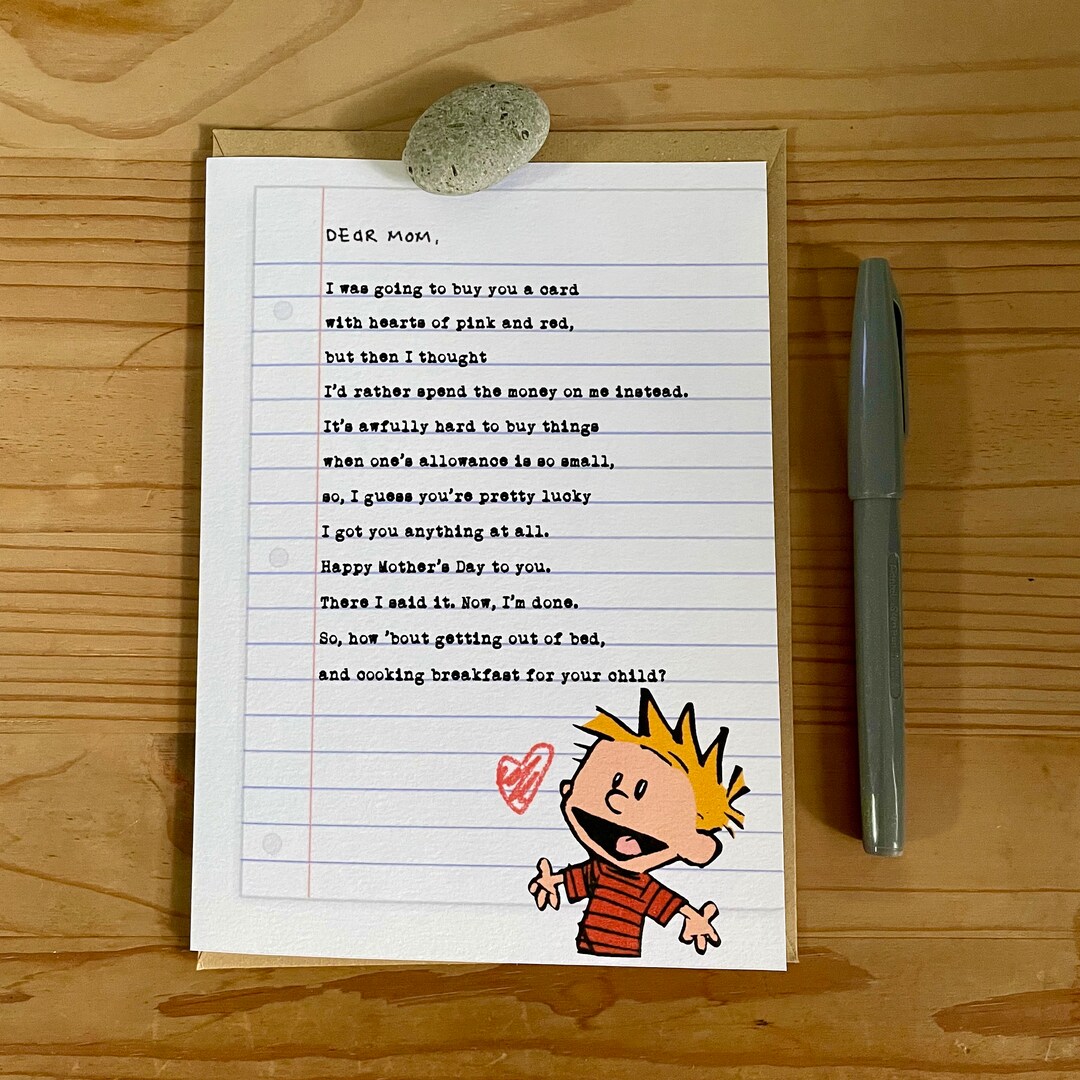 DEAR MOM,
I was going to buy you a card
with hearts of pink and red,
but then I thought
I'd rather spend the money on me instead.
It's awfully hard to buy things
when one's allowance is so small,
so, I guess you're pretty lucky
I got you anything at all.
Happy Mother's Day to you.
There I said it. Now, I'm done.
So, how 'bout getting out of bed,
and cooking breakfast for your child?